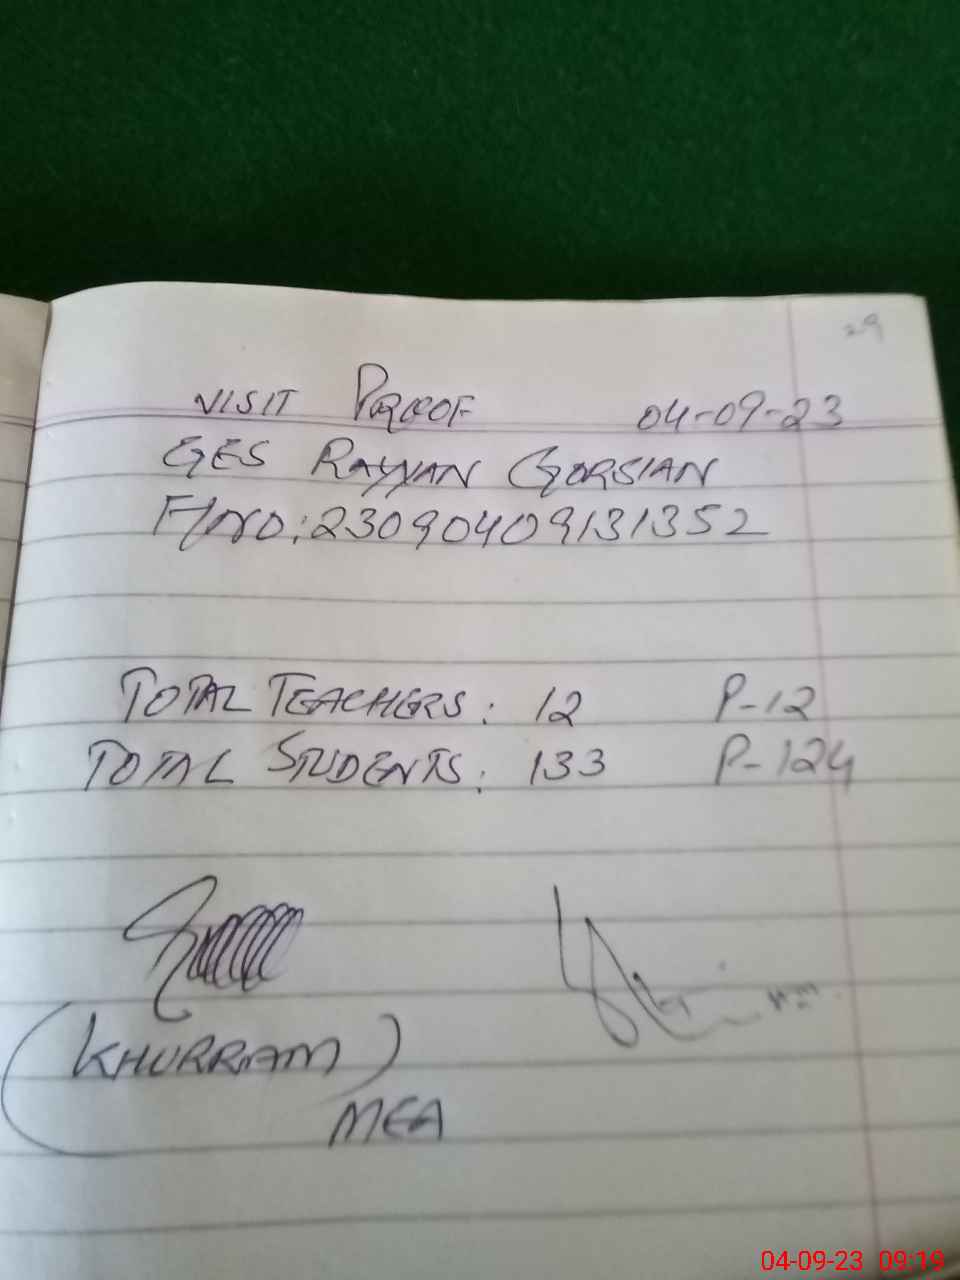 29
VISIT PROOF 04-09-23
GES RAYYAN GORSIAN
F/NO: 23090409131352
TOTAL TEACHERS: 12 P-12
TOTAL STUDENTS: 133 P-124
(KHURRAM)
MEA
04-09-23 09:19